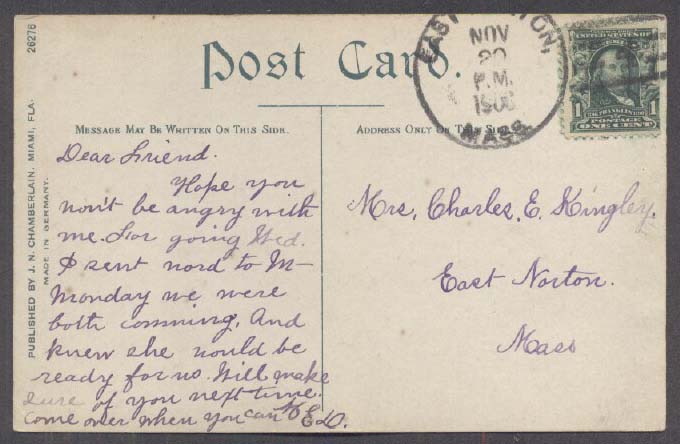 26276
PUBLISHED BY J. N. CHAMBERLAIN, MIAMI, FLA.
MADE IN GERMANY.
Post Card.
EAST NORTON,
NOV
20
P.M.
1906
MASS.
POSTAGE
1 ONE CENT 1
MESSAGE MAY BE WRITTEN ON THIS SIDE.
ADDRESS ONLY ON THIS SIDE.
Dear Friend.
Hope you
won't be angry with
me. For going Wed.
I sent word to M-
Monday we were
both comming, And
knew she would be
ready for us. Will make
sure of you next time.
Come over when you can
E D.
Mrs. Charles. E. Kingley.
East Norton.
Mass